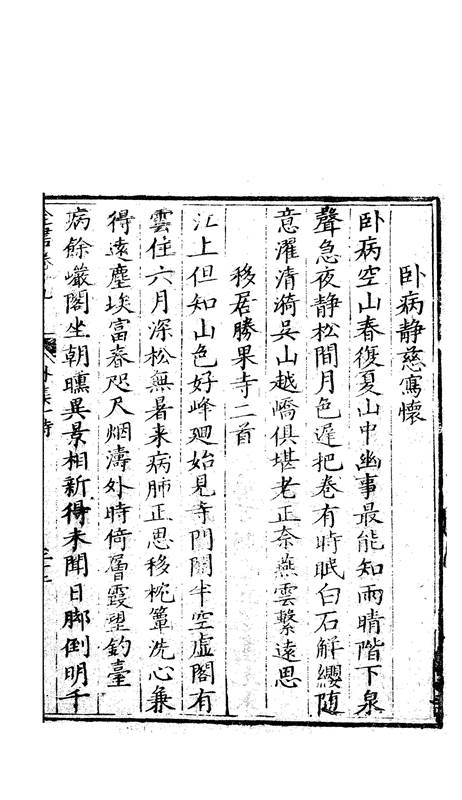 卧病静慈寫懷
卧病空山春復夏山中幽事最能知雨晴階下泉
聲急夜静松間月色遲把卷有時眠白石解纓随
意濯清漪吳山越嶠俱堪老正奈燕雲繫遠思
移居勝果寺二首
江上但知山色好峰廻始見寺門開半空虚閣有
雲住六月深松無暑来病肺正思移枕簟洗心兼
得遠塵埃富春咫尺烟濤外時倚層霞望釣臺
病餘巖閣坐朝曛異景相新得未聞日脚倒明千